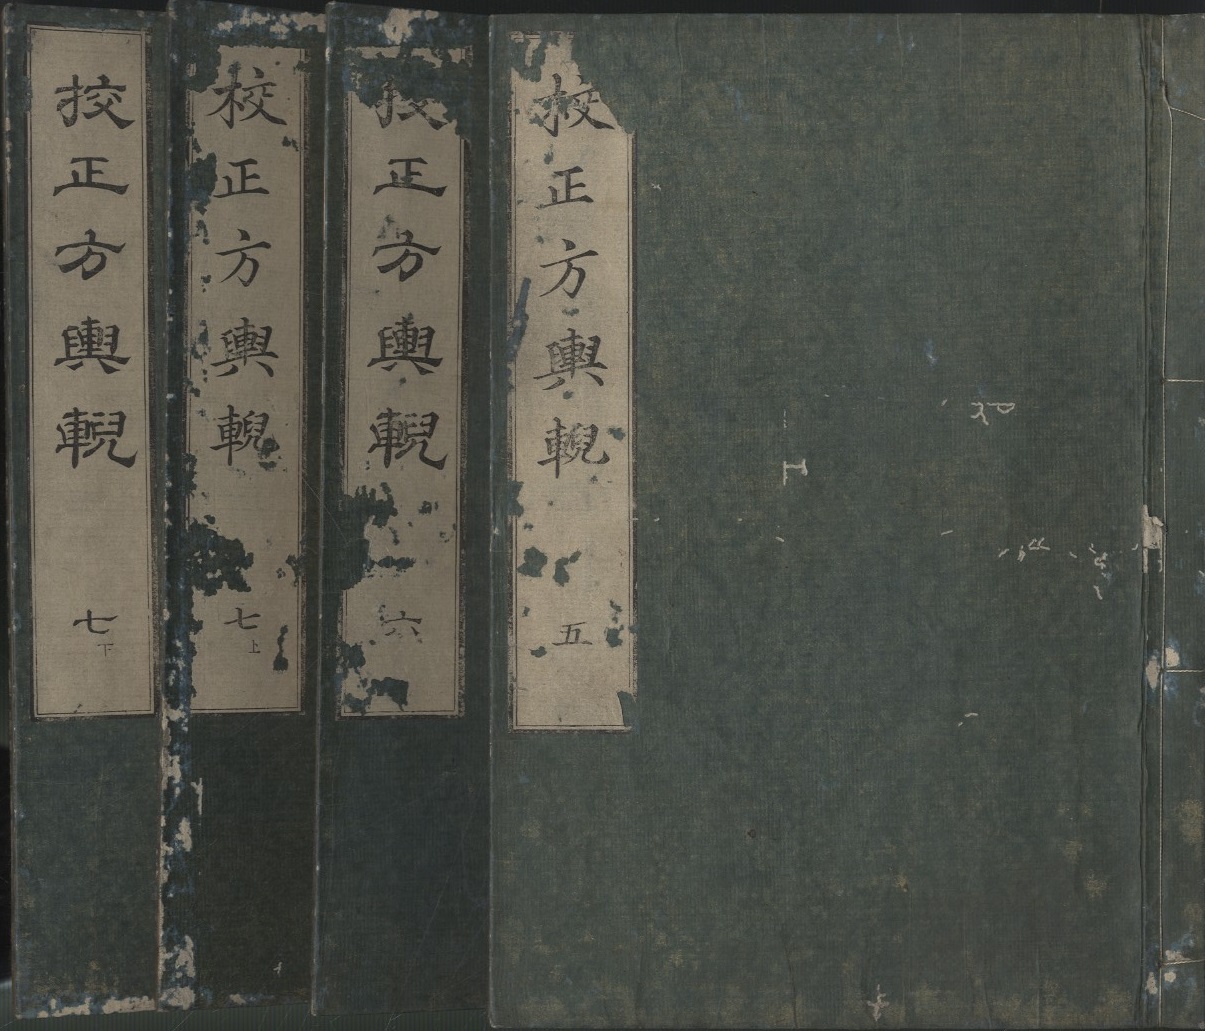 校正方輿輗 五
挍正方輿輗 六
校正方輿輗 七上
挍正方輿輗 七下